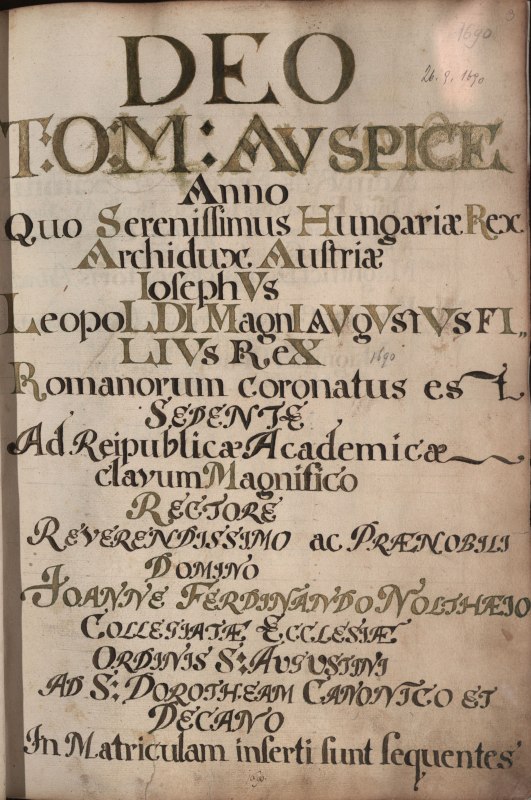 3
1690
DEO
26. 9. 1690
T:O:M: AVSPICE
Anno
Quo Sereniſſimus Hungariæ Rex
Archidux Auſtriæ
IosephVs
LeopoLDI MagnI AVgVstVs FI„
LIVs ReX
1690
Romanorum coronatus est
SEDENTE
Ad Reipublicæ Academicæ
clavum Magnifico
RECTORE
REVERENDISSIMO ac PRÆNOBILI
DOMINO
JOANNE FERDINANDO NOLTHÆIO
COLLEGIATÆ ECCLESIÆ
ORDINIS S: AUGUSTINI
AD S: DOROTHEAM CANONICO ET
DECANO
In Matriculam inſerti ſunt ſequentes